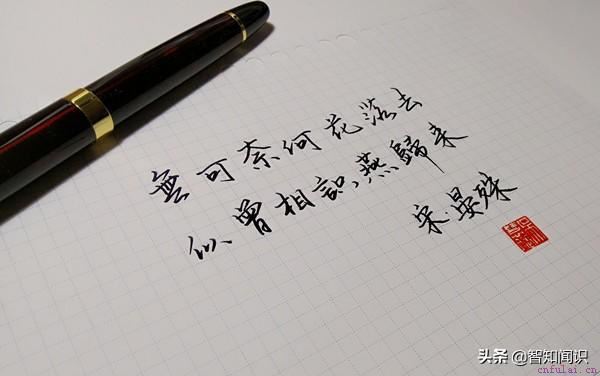 無可奈何花落去
似曾相識燕歸来
宋·晏殊
头条 @智知闻识
cnfulai.cn